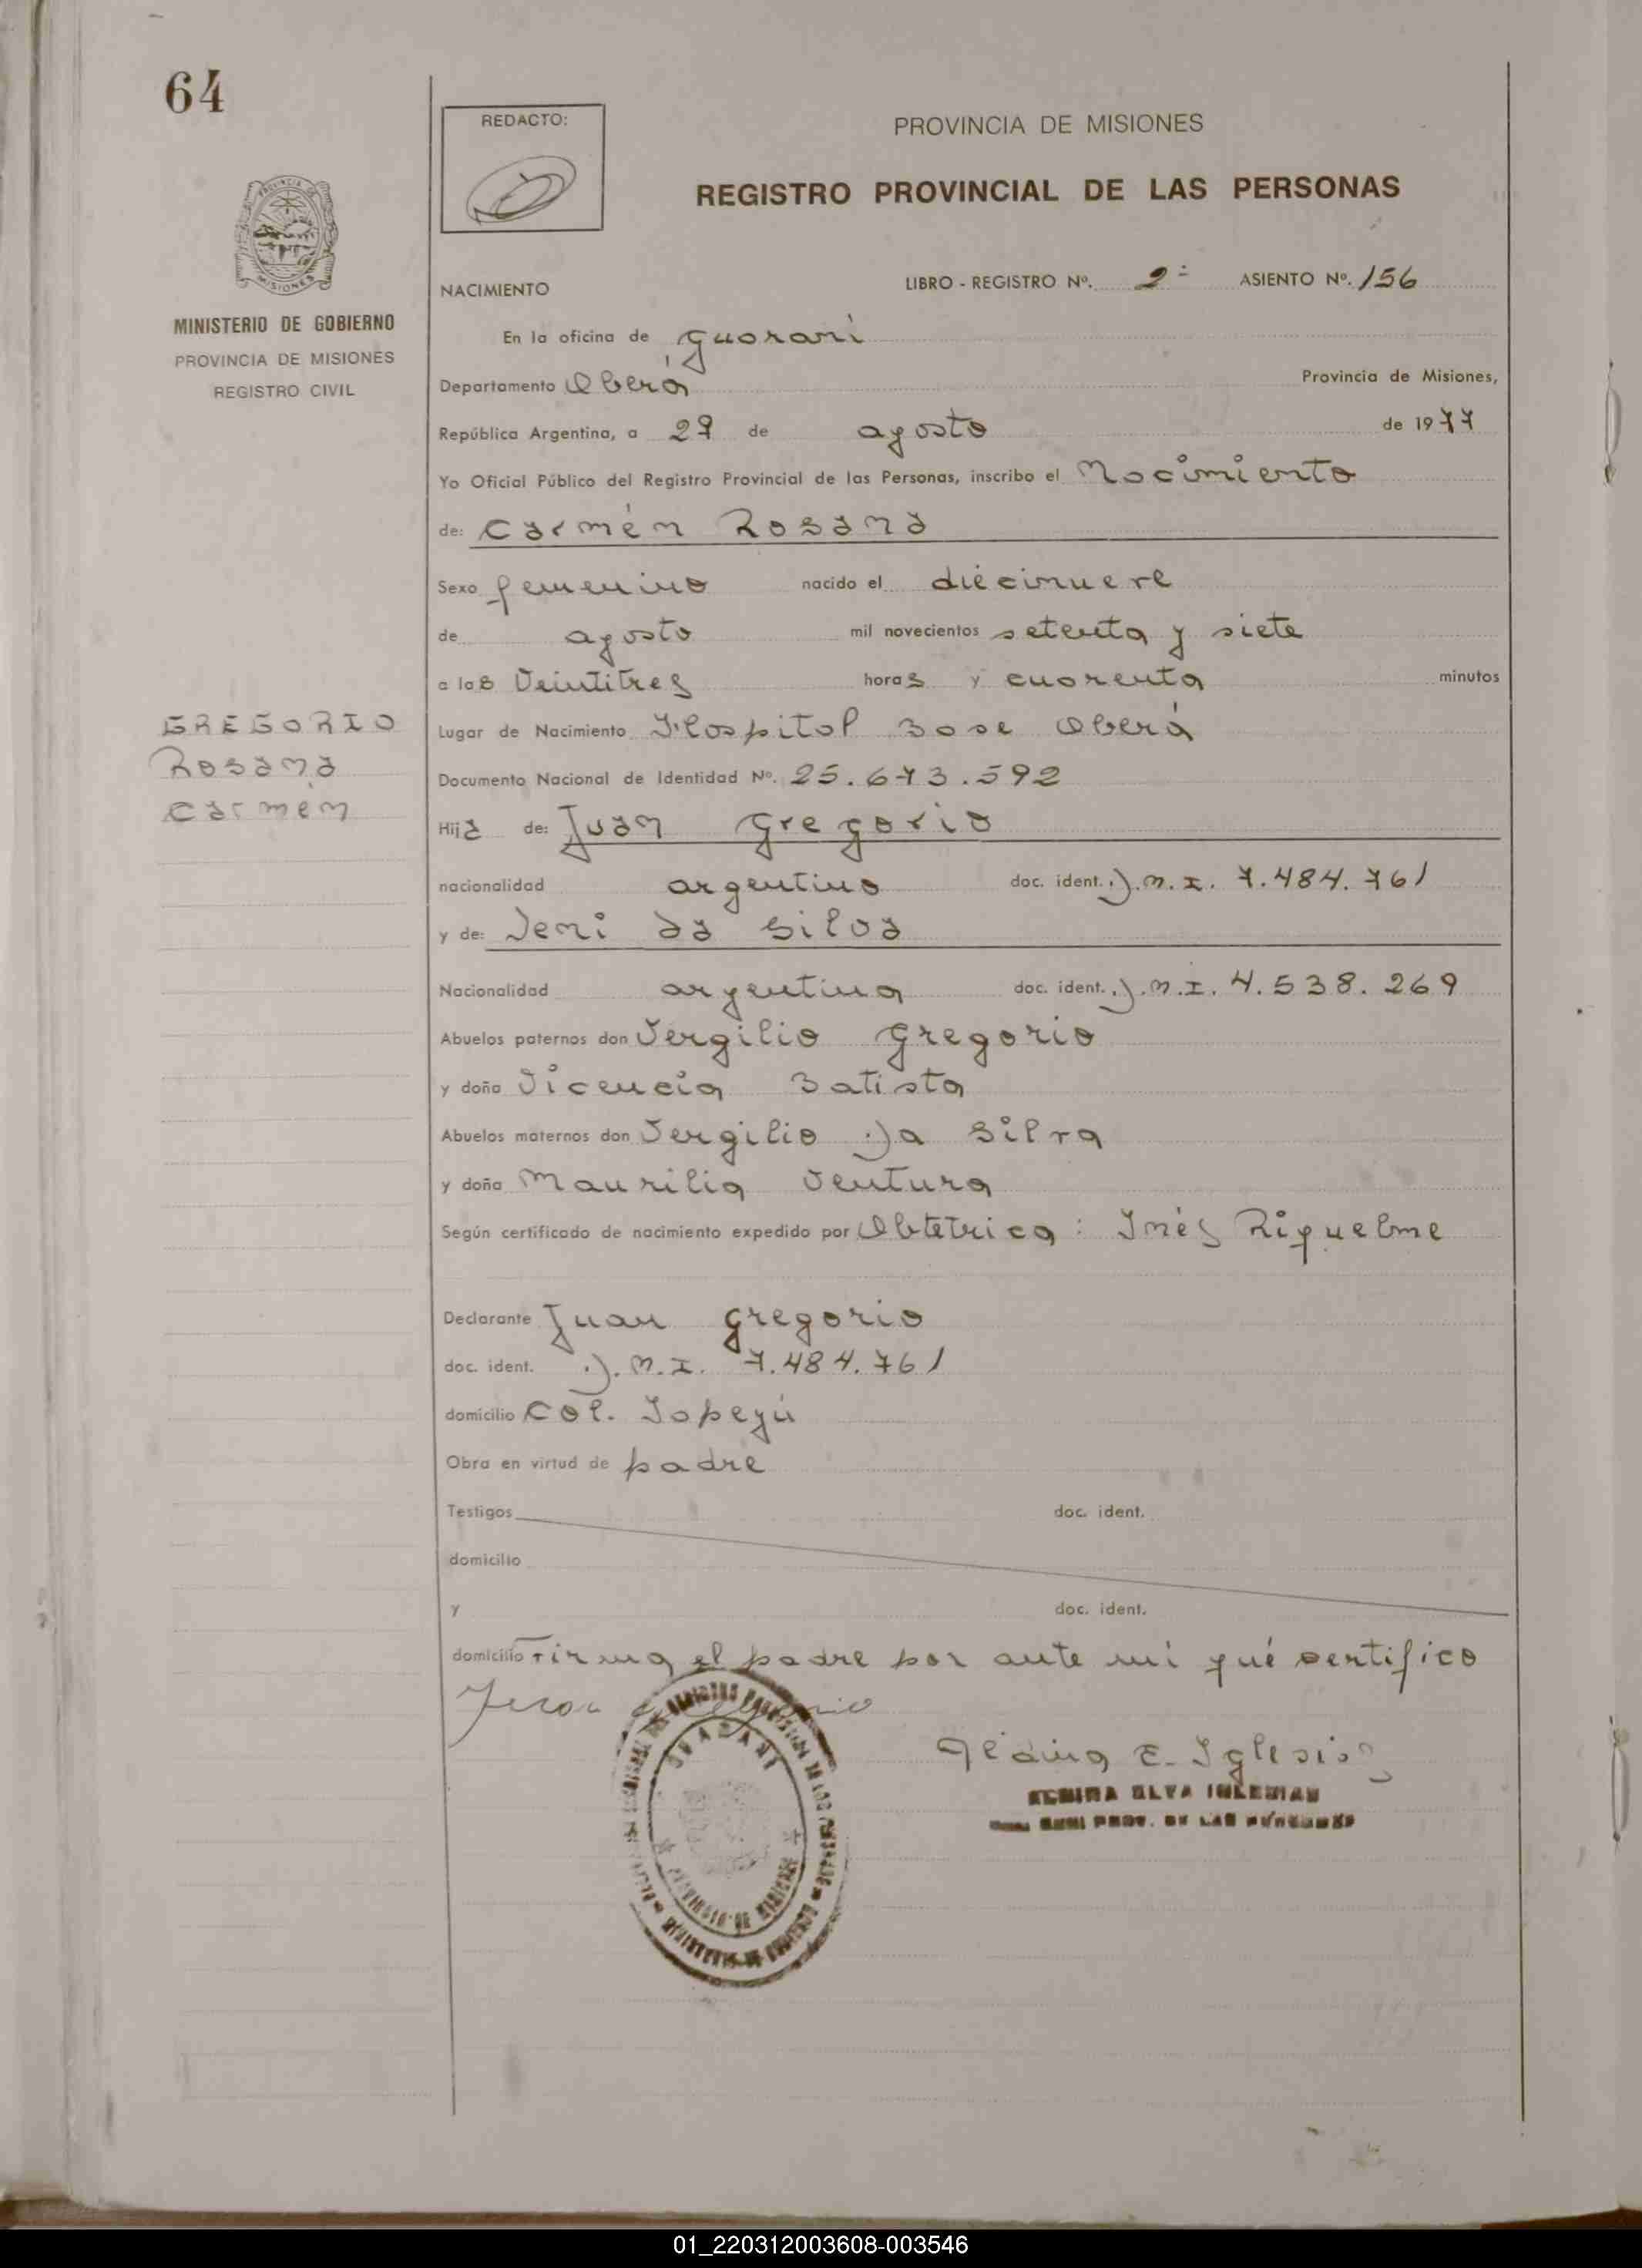 64
REDACTO:
PROVINCIA DE MISIONES
REGISTRO PROVINCIAL DE LAS PERSONAS
MINISTERIO DE GOBIERNO
PROVINCIA DE MISIONES
REGISTRO CIVIL
NACIMIENTO LIBRO - REGISTRO Nº. 2º ASIENTO Nº. 156
En la oficina de Guarani
Departamento Oberá Provincia de Misiones,
República Argentina, a 29 de agosto de 1977
Yo Oficial Público del Registro Provincial de las Personas, inscribo el Nacimiento
de: Carmén Rosana
Sexo femenino nacido el diecinueve
de agosto mil novecientos setenta y siete
a las Veintitres horas y cuarenta minutos
GREGORIO
Rosana
Carmén
Lugar de Nacimiento Hospital Base Oberá
Documento Nacional de Identidad Nº. 25.673.592
Hija de: Juan Gregorio
nacionalidad argentino doc. ident. D.N.I. 7.484.761
y de: Deni da Silva
Nacionalidad argentina doc. ident. D.N.I. 4.538.269
Abuelos paternos don Vergilio Gregorio
y doña Vicencia Batista
Abuelos maternos don Vergilio Da Silva
y doña Maurilia Ventura
Según certificado de nacimiento expedido por Obtetrica: Inés Riquelme
Declarante Juan Gregorio
doc. ident. D.N.I. 7.484.761
domicilio Col. Yapeyú
Obra en virtud de padre
Testigos doc. ident.
domicilio
y doc. ident.
domicilio Firma el padre por ante mi qué sertifico
Juan Gregorio
GUARANI
PROVINCIA DE MISIONES
E. Iglesias
ELVA IGLESIAS
PROV. DE LAS PERSONAS
01_220312003608-003546